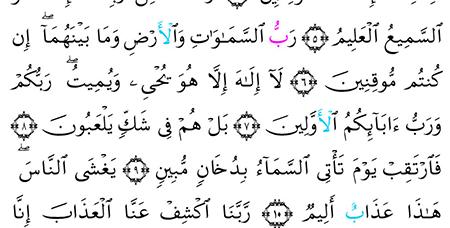 ٱلسَّمِيعُ ٱلْعَلِيمُ ﴿٥﴾ رَبُّ ٱلسَّمَـٰوَٰتِ وَٱلْأَرْضِ وَمَا بَيْنَهُمَآ ۖ إِن
كُنتُم مُّوقِنِينَ ﴿٦﴾ لَآ إِلَـٰهَ إِلَّا هُوَ يُحْىِۦ وَيُمِيتُ ۖ رَبُّكُمْ
وَرَبُّ ءَابَآئِكُمُ ٱلْأَوَّلِينَ ﴿٧﴾ بَلْ هُمْ فِى شَكٍّ يَلْعَبُونَ ﴿٨﴾
فَٱرْتَقِبْ يَوْمَ تَأْتِى ٱلسَّمَآءُ بِدُخَانٍ مُّبِينٍ ﴿٩﴾ يَغْشَى ٱلنَّاسَ ۖ
هَـٰذَا عَذَابٌ أَلِيمٌ ﴿١٠﴾ رَّبَّنَا ٱكْشِفْ عَنَّا ٱلْعَذَابَ إِنَّا